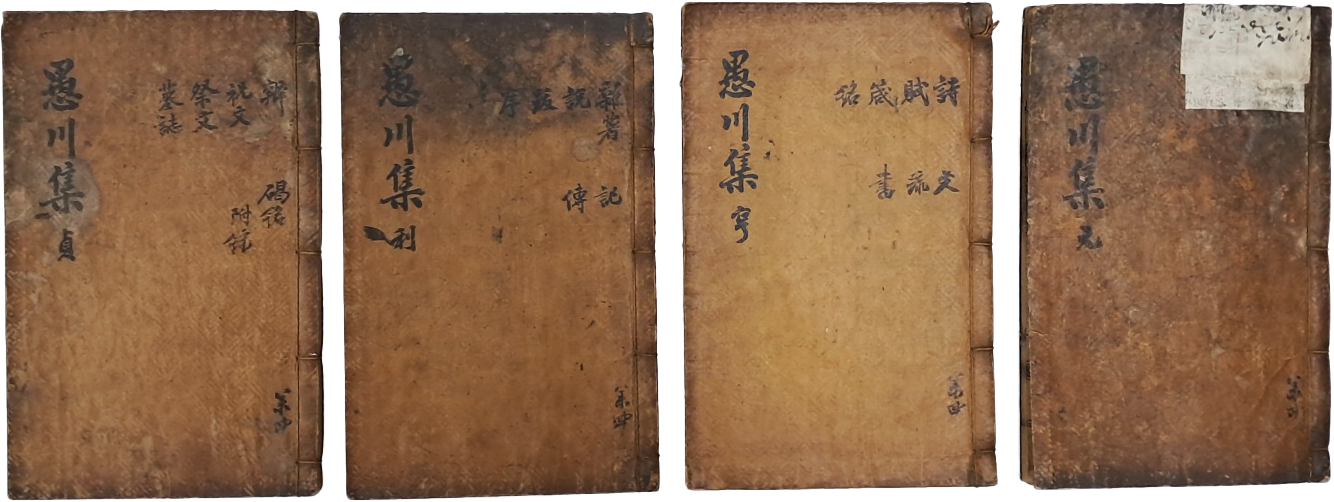 愚川集 元
共四
詩 文
賦 疏
箴 書
銘
愚川集 亨
共四
雜著 記
說 傳
跋
序
愚川集 利
共四
碣銘
祝文 附錄
祭文
墓誌
愚川集 貞
共四